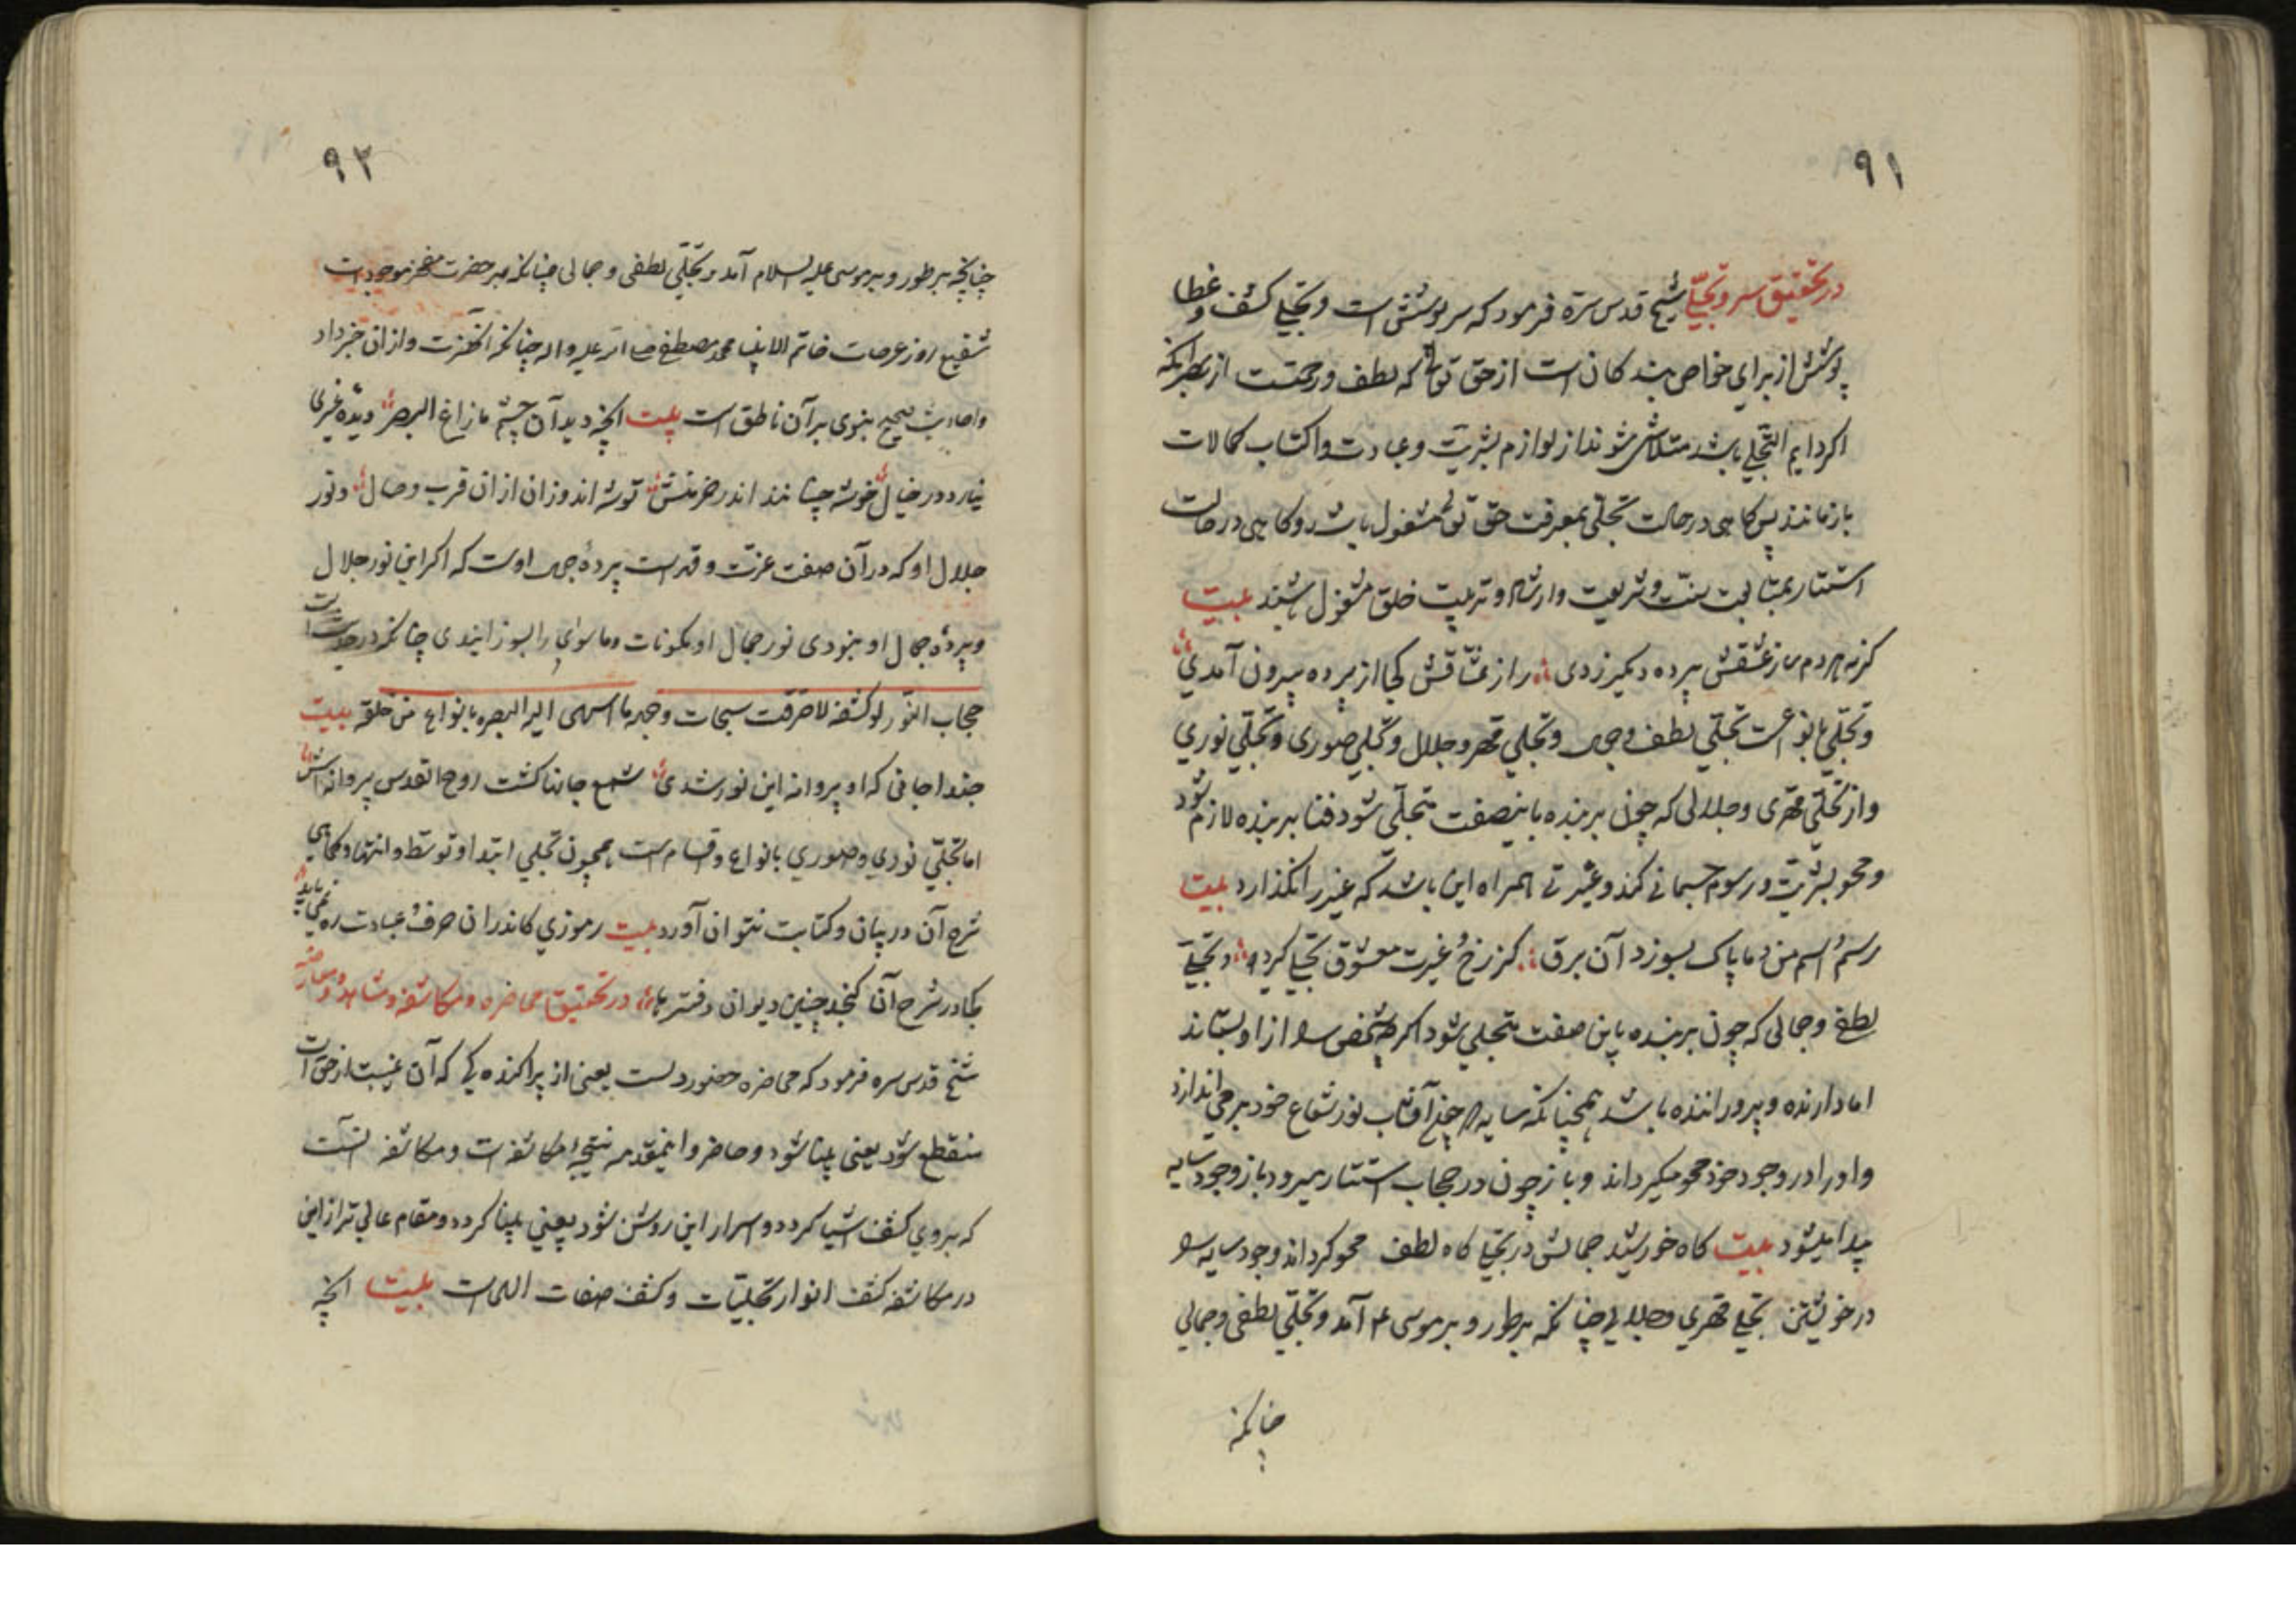 ۹۱
در تحقیق ستر و تجلی شیخ قدس سره فرمود که ستر پوشش است و تجلی کشف و غطا
پوشش از برای خواص بندکان است از حق تعالی که لطف و رحمتست از بهر آنکه
اکر دایم التجلی باشد متلاشی شوند از لوازم بشریت و عبادت و اکتساب کمالات
بازمانند پس کاهی در حالت تجلی بمعرفت حق تعالی مشغول باشد و کاهی در حالت
استتار بمتابعت سنت و شریعت و ارشاد و تربیت خلق مشغول باشند بیت
کر نه هر دم ساز عشقش پرده دیکر زدی راز عشاقش کجا از پرده بیرون آمدی
و تجلی بانواعست تجلی لطف و جمال و تجلی قهر و جلال و تجلی صوری و تجلی نوری
و از تجلی قهری و جلالی که چون بر بنده باینصفت متجلی شود فنا بر بنده لازم شود
و محو بشریت و رسوم جسمانی کند و غیرتی همراه این باشد که غیر را نکذارد بیت
رسم و اسم من و ما پاک بسوزد آن برق کز رخ غیرت معشوق تجلی کرده و تجلی
لطفی و جمالی که چون بر بنده باین صفت متجلی شود اکرچه شخص را از او بستاند
اما دارنده و پروراننده باشد همچنانکه سایه هر چند آفتاب نور شعاع خود بر می اندازد
و او را در وجود خود محو میکرداند و باز چون در حجاب استتار میرود باز وجود سایه
پیدا میشود بیت کاه خورشید جمالش در تجلی کاه لطف محو کرداند وجود سایه را
در خویشتن تجلی قهری و جلالی چنانکه بر طور و بر موسی ع آمد و تجلی لطفی و جمالی
چنانکه
۹۲
چنانچه بر طور و بر موسی علیه السلام آمد و تجلی لطفی و جمالی چنانکه بر حضرت مفخر موجودات
شفیع روز عرصات خاتم الانبیا محمد مصطفی صلی الله علیه و اله چنانکه آنحضرت از آن خبر داد
و احادیث صحیح نبوی بر آن ناطق است بیت آنچه دید آن چشم ما زاغ البصر دیده غیری
نیارد در خیال خوشه چینانند اندر خرمنش توشه اندوزان از آن قرب وصال و نور
جلال او که در آن صفت عزت و قدرست پرده جمال اوست که اکر این نور جلال
و پرده جمال او نبودی نور جمال او مکونات و ماسوای را بسوزانیدی چنانکه در حدیث است
حجاب النور لو کشفه لاحرقت سبحات وجهه ما انتهی الیه البصره بانواع من خلقه بیت
حبذا جانی که او پروانه این نور شدی شمع جانها کشت روح القدس پروانه اش
اما تجلی نوری و صوری بانواع و اقسام است همچون تجلی ابتدا و توسط و انتها و کماهی
شرح آن در بیان و کتابت نتوان آورد بیت رموزی کاندران حرف و عبارت ره نمی یابد
کجا در شرح آن کنجد چنین دیوان دفترها در تحقیق محاضره و مکاشفه و مشاهده و معارضه
شیخ قدس سره فرمود که محاضره حضور دلست یعنی از پراکنده کی که آن غیبت از حق است
منقطع شود یعنی بینا شود و حاضر و اینمقدمه نتیجه مکاشفه است و مکاشفه آنست
که بروی کشف اشیا کردد و اسرار این روشن شود یعنی بینا کردد و مقام عالی تر از این
در مکاشفه کشف انوار تجلیات و کشف صفات الهی است بیت آنچه